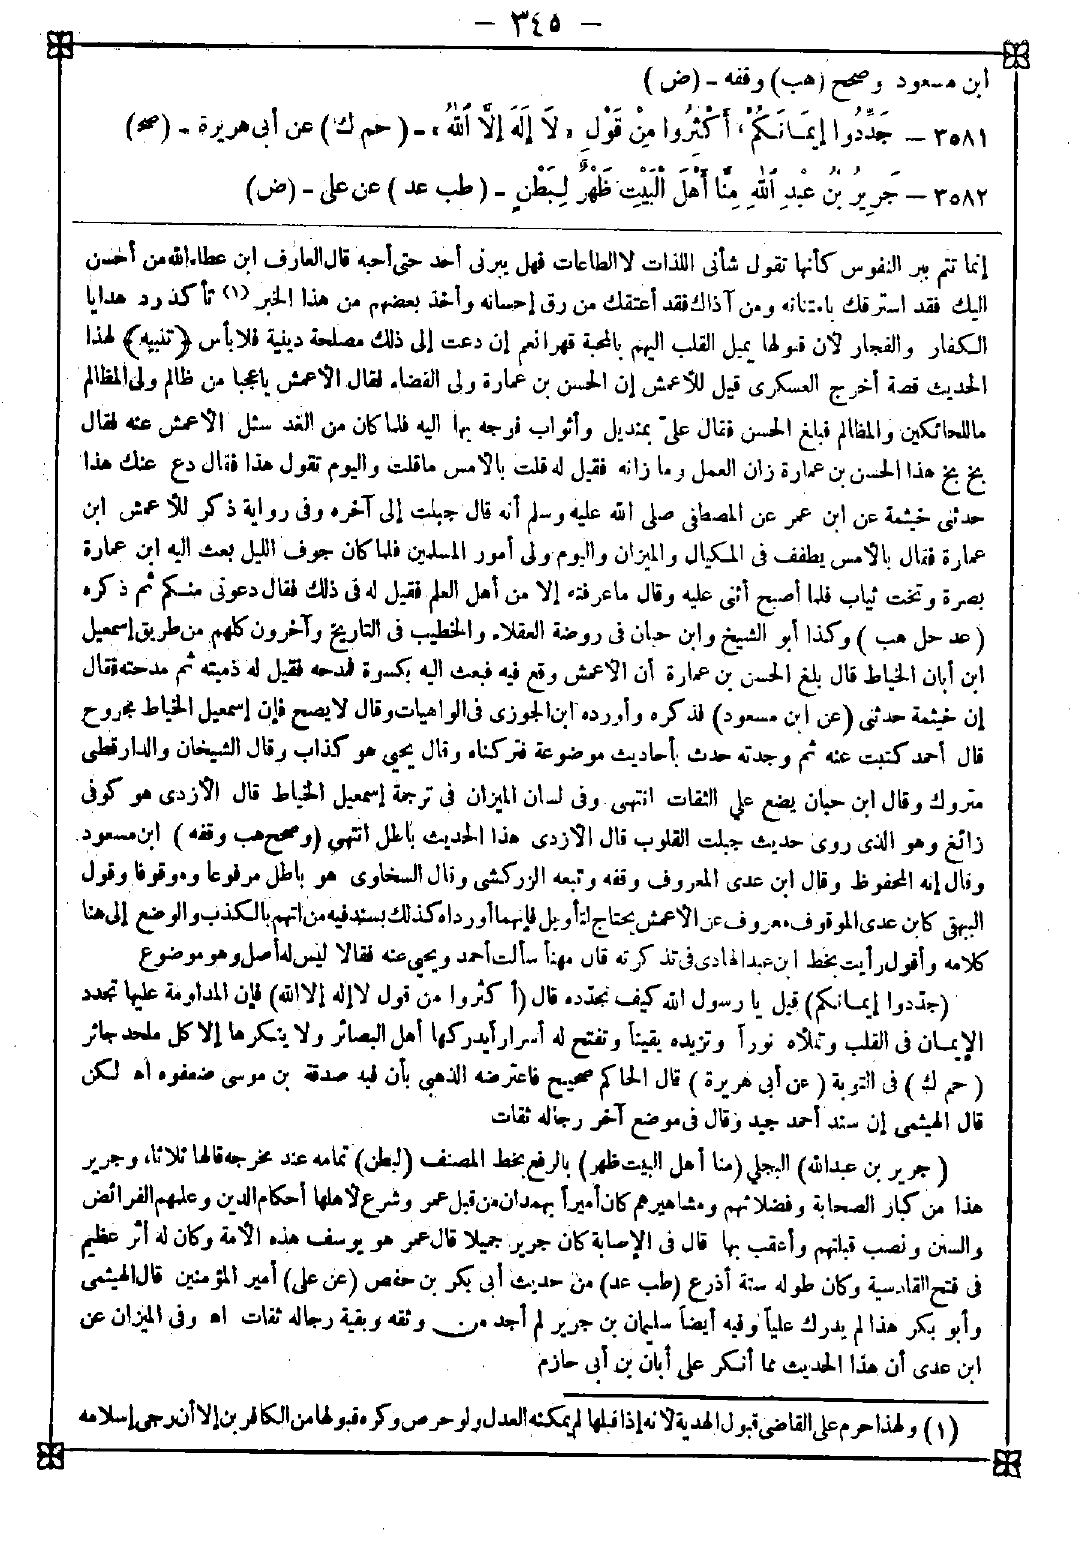 — ٣٤٥ —
ابن مسعود وصحح (هب) وقفه - (ض)
٣٥٨١ - جَدِّدُوا إِيمَانَكُمْ، أَكْثِرُوا مِنْ قَوْلِ «لَا إِلَهَ إِلَّا اللهُ» - (حم ك) عن أبى هريرة - (صح)
٣٥٨٢ - جَرِيرُ بْنُ عَبْدِ اللهِ مِنَّا أَهْلَ الْبَيْتِ ظَهْرٌ لِبَطْنٍ - (طب عد) عن على - (ض)
إنما تتم ببر النفوس كأنها تقول شأنى اللذات لا الطاعات فهل يبرنى أحد حتى أحبه قال العارف ابن عطاء الله من أحسن
اليك فقد استرقك بامتنانه ومن آذاك فقد أعتقك من رق إحسانه وأخذ بعضهم من هذا الخبر (١) تأكد رد هدايا
الكفار والفجار لأن قبولها يميل القلب اليهم بالمحبة قهرا نعم إن دعت إلى ذلك مصلحة دينية فلا بأس ﴿تنبيه﴾ لهذا
الحديث قصة أخرج العسكرى قيل للأعمش إن الحسن بن عمارة ولى القضاء فقال الأعمش ياعجبا من ظالم ولى المظالم
ما للحائكين والمظالم فبلغ الحسن فقال علىّ بمنديل وأثواب فوجه بها اليه فلما كان من الغد سئل الأعمش عنه فقال
بخ بخ هذا الحسن بن عمارة زان العمل وما زانه فقيل له قلت بالأمس ماقلت واليوم تقول هذا فقال دع عنك هذا
حدثنى خيثمة عن ابن عمر عن المصطفى صلى الله عليه وسلم أنه قال جبلت إلى آخره وفى رواية ذكر للأعمش ابن
عمارة فقال بالأمس يطفف فى المكيال والميزان واليوم ولى أمور المسلمين فلما كان جوف الليل بعث اليه ابن عمارة
بصرة وتخت ثياب فلما أصبح أثنى عليه وقال ماعرفته إلا من أهل العلم فقيل له فى ذلك فقال دعونى منكم ثم ذكره
(عد حل هب) وكذا أبو الشيخ وابن حبان فى روضة العقلاء والخطيب فى التاريخ وآخرون كلهم من طريق إسمعيل
ابن أبان الخياط قال بلغ الحسن بن عمارة أن الأعمش وقع فيه فبعث اليه بكسوة فمدحه فقيل له ذميته ثم مدحته فقال
إن خيثمة حدثنى (عن ابن مسعود) فذكره وأورده ابن الجوزى فى الواهيات وقال لايصح فإن إسمعيل الخياط مجروح
قال أحمد كتبت عنه ثم وجدته حدث بأحاديث موضوعة فتركناه وقال يحيى هو كذاب وقال الشيخان والدارقطى
متروك وقال ابن حبان يضع على الثقات انتهى وفى لسان الميزان فى ترجمة إسمعيل الخياط قال الأزدى هو كوفى
زائغ وهو الذى روى حديث جبلت القلوب قال الأزدى هذا الحديث باطل انتهى (وصحح هب وقفه) ابن مسعود
وقال إنه المحفوظ وقال ابن عدى المعروف وقفه وتبعه الزركشى وقال السخاوى هو باطل مرفوعا وموقوفا وقول
البيهقى كابن عدى الموقوف معروف عن الأعمش يحتاج لتأويل فإنهما أورداه كذلك بسند فيه من اتهم بالكذب والوضع إلى هنا
كلامه وأقول رأيت بخط ابن عبد الهادى فى تذكرته قال مهنأ سألت أحمد ويحيى عنه فقالا ليس له أصل وهو موضوع
(جددوا إيمانكم) قيل يا رسول الله كيف نجدده قال (أكثروا من قول لا إله إلا الله) فإن المداومة عليها تجدد
الإيمان فى القلب وتملأه نوراً وتزيده يقيناً وتفتح له أسراراً يدركها أهل البصائر ولا ينكرها إلا كل ملحد جائر
(حم ك) فى التوبة (عن أبى هريرة) قال الحاكم صحيح فاعترضه الذهبى بأن فيه صدقة بن موسى ضعفوه اه لكن
قال الهيثمى إن سند أحمد جيد وقال فى موضع آخر رجاله ثقات
(جرير بن عبدالله) البجلى (منا أهل البيت ظهر) بالرفع بخط المصنف (لبطن) تمامه عند مخرجه قالها ثلاثا، وجرير
هذا من كبار الصحابة وفضلائهم ومشاهيرهم كان أميراً بهمدان من قبل عمر وشرع لأهلها أحكام الدين وعلمهم الفرائض
والسنن ونصب قبلتهم وأعقب بها قال فى الإصابة كان جرير جميلا قال عمر هو يوسف هذه الأمة وكان له أثر عظيم
فى فتح القادسية وكان طوله ستة أذرع (طب عد) من حديث أبى بكر بن حفص (عن على) أمير المؤمنين قال الهيثمى
وأبو بكر هذا لم يدرك علياً وفيه أيضاً سليمان بن جرير لم أجد من وثقه وبقية رجاله ثقات اه وفى الميزان عن
ابن عدى أن هذا الحديث مما أنكر على أبان بن أبى حازم
(١) ولهذا حرم على القاضى قبول الهدية لأنه إذا قبلها لم يمكنه العدل ولو حرص وكره قبولها من الكافرين إلا أن رجى إسلامه